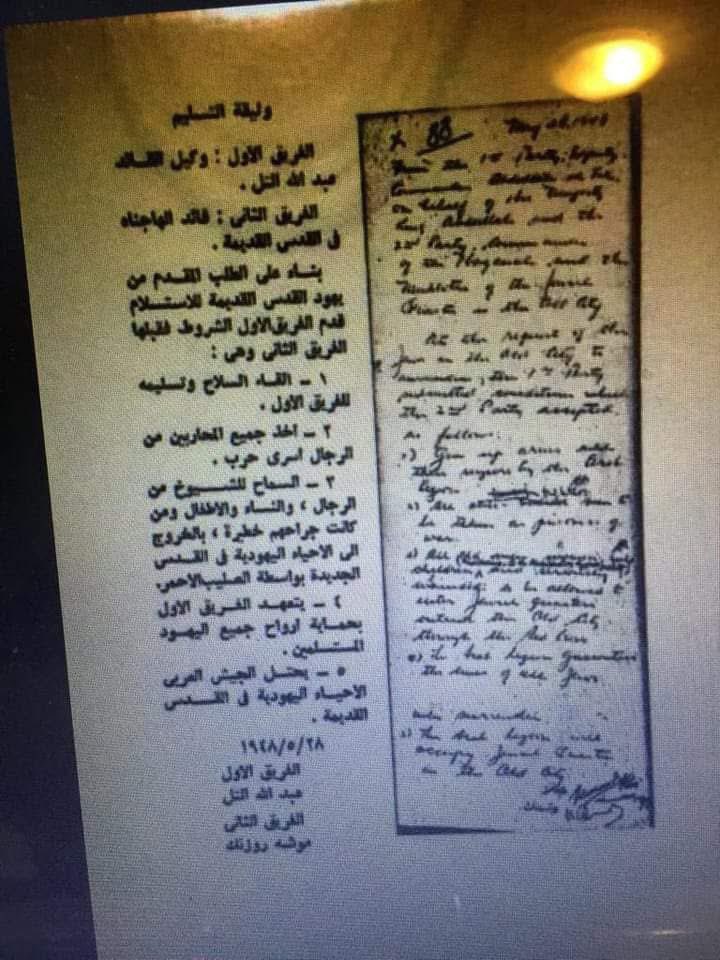 وثيقة التسليم
الفريق الاول : وكيل القائد
عبد الله التل .
الفريق الثانى : قائد الهاجناه
فى القدس القديمة .
بناء على الطلب المقدم من
يهود القدس القديمة للاستسلام
قدم الفريق الاول الشروط فقبلها
الفريق الثانى وهى :
١ – القاء السلاح وتسليمه
للفريق الاول .
٢ – اخذ جميع المحاربين من
الرجال اسرى حرب .
٣ – السماح للشيوخ من
الرجال ، والنساء والاطفال ومن
كانت جراحهم خطيرة ، بالخروج
الى الاحياء اليهودية فى القدس
الجديدة بواسطة الصليب الاحمر.
٤ – يتعهد الفريق الاول
بحماية ارواح جميع اليهود
المستسلمين .
٥ – يحتل الجيش العربى
الاحياء اليهودية فى القدس
القديمة .
١٩٤٨/٥/٢٨
الفريق الاول
عبد الله التل
الفريق الثانى
موشه روزنك
x 88 May 28, 1948
the 1st Party, Deputy
Commander Abdullah et Tel
on behalf of His Majesty
King Abdullah and the
2nd Party, Commander
of the Haganah and the
Mukhtar of the Jewish
Quarter in the Old City
At the request of the
Jews in the Old City to
surrender, the 1st Party
submitted conditions which
the 2nd Party accepted
as follows:
Give up arms
by the Arab
Legion
All men to
be taken as prisoners of
war
All
children and severely
wounded to be allowed to
enter Jewish Quarters
outside the Old City
through the Red Cross
The Arab Legion guarantees
the lives of all Jews
who surrender.
The Arab Legion will
occupy Jewish Quarter
in the Old City